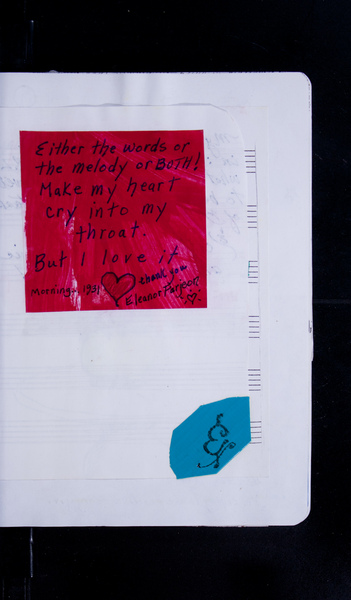 Either the words or
the melody or BOTH!
Make my heart
cry into my
throat.
But I love it
thank you
Eleanor